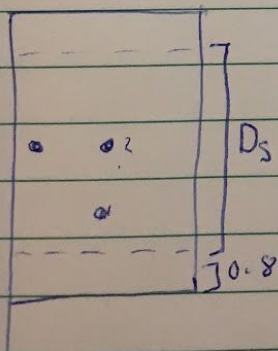 2
Ds
0.8